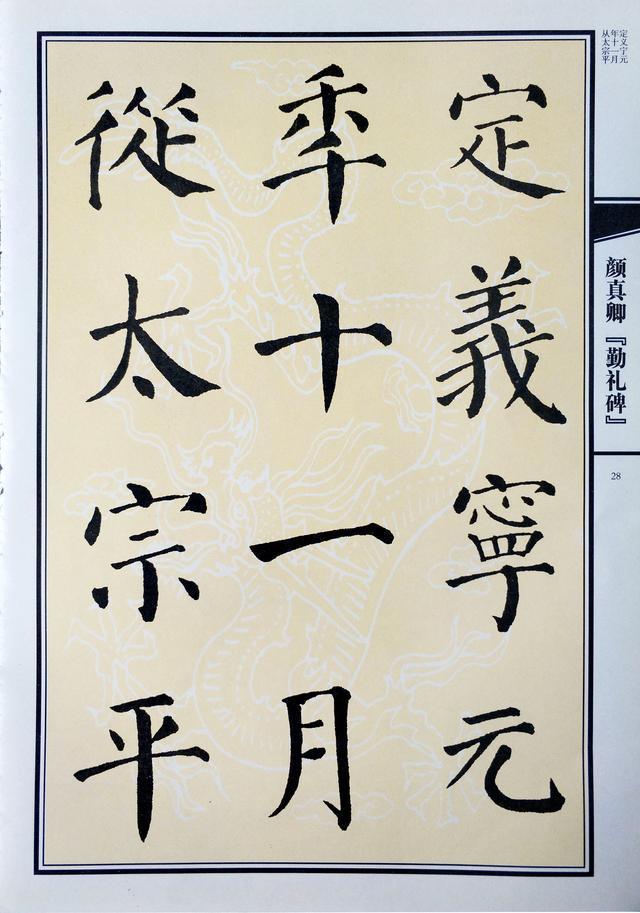 定義寧元
秊十一月
從太宗平
定义宁元
年十一月
从太宗平
颜真卿『勤礼碑』
28